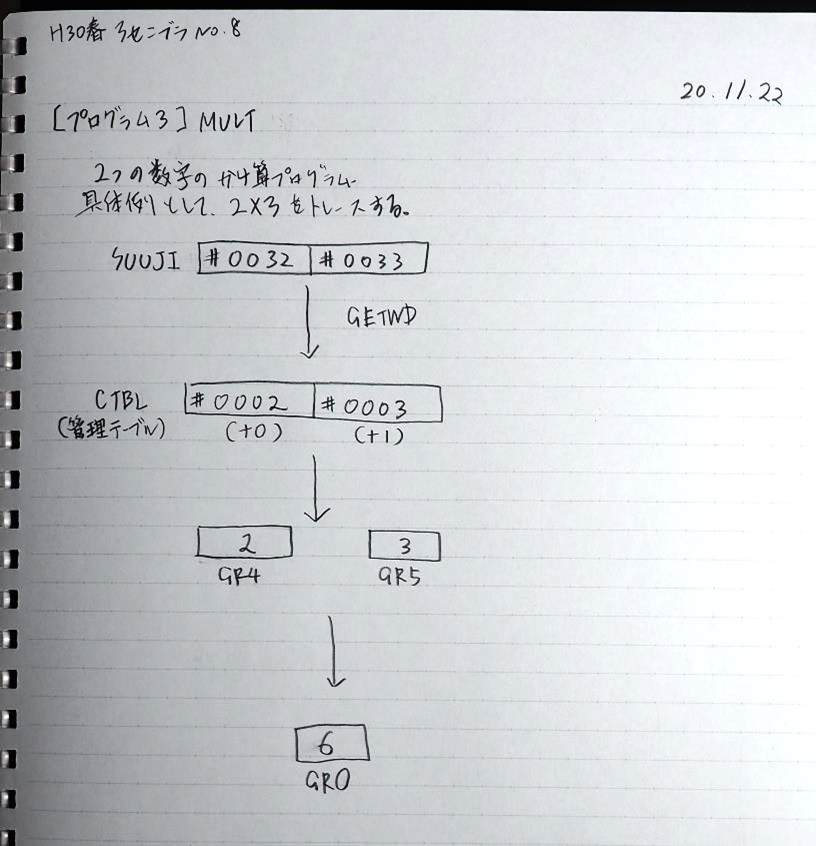 H30春 アセンブラ No.8
20.11.22
[プログラム3] MULT
2つの数字のかけ算プログラム
具体例として、2×3をトレースする。
SUUJI #0032 #0033
GETWD
CTBL #0002 #0003
(管理テーブル) (+0) (+1)
2 3
GR4 GR5
6
GR0